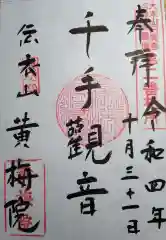 奉拝 令和四年
十月三十一日
千手観音
伝衣山 黄梅院